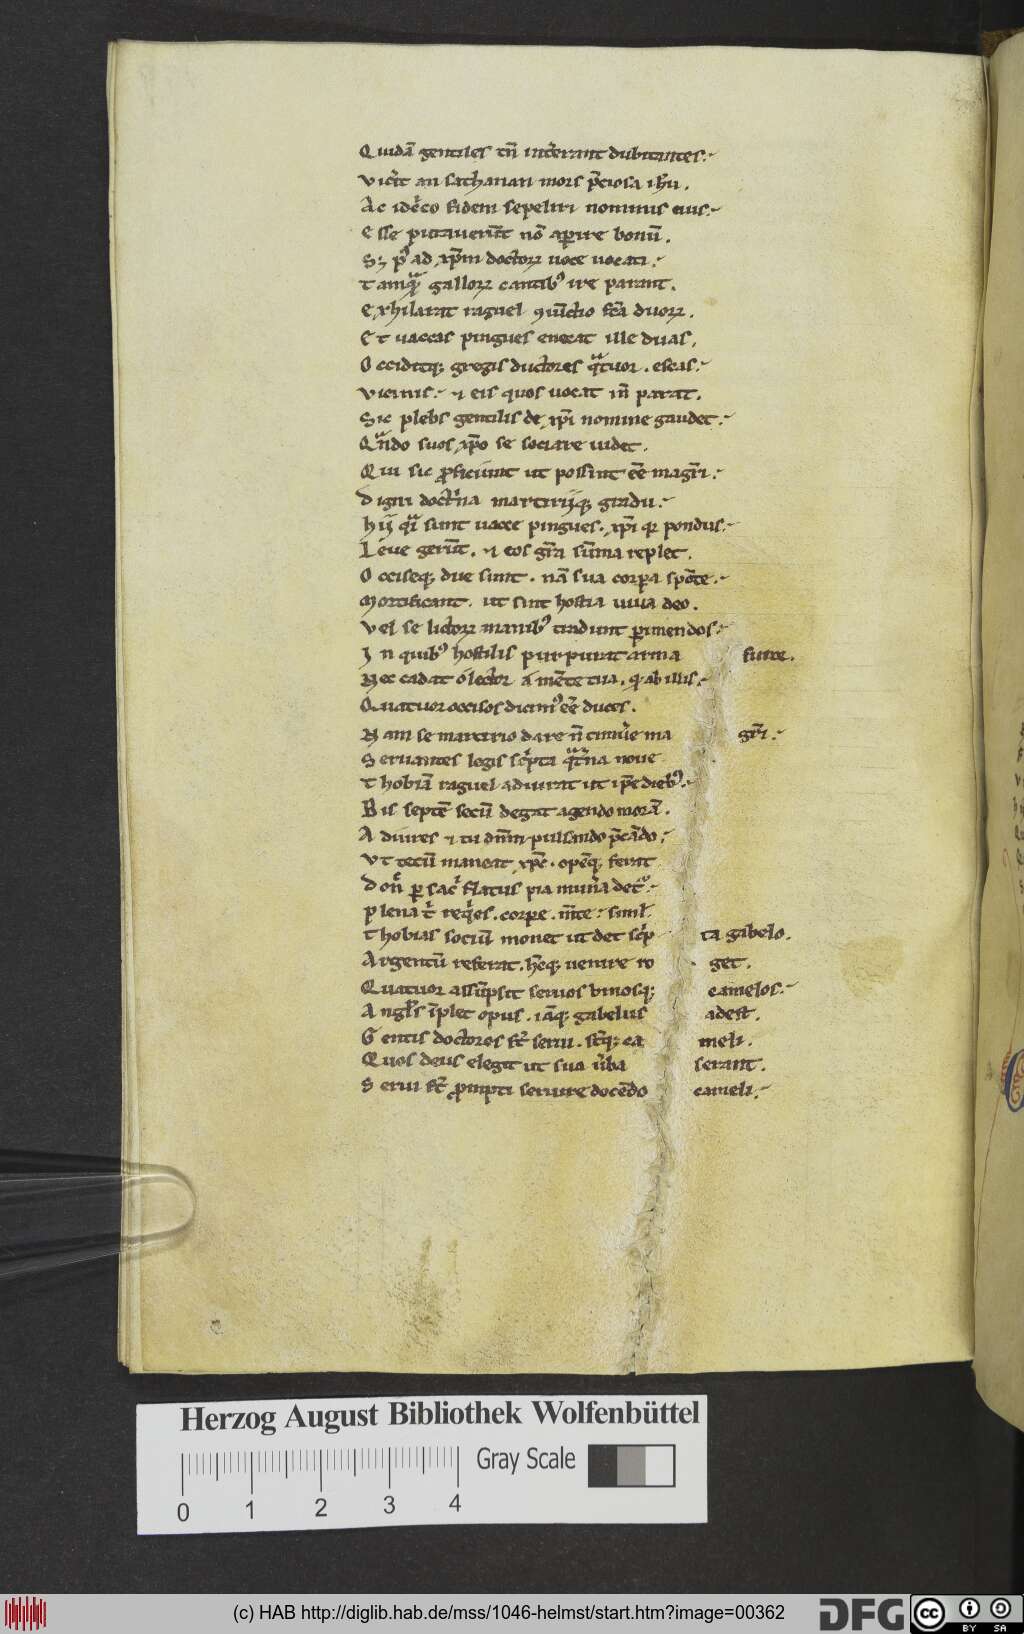 Quidā gentiles tn̄ int̄erant dubitantes.
Vic̄it an sathanan mors p̄ciosa ih̄u.
Ac idc̄o fidem sepeliri nominis eius.
Esse putauer̄t nō aperire bonū.
S; pꝰ ad xp̄m doctoꝝ uoce uocati.
Tamqᵃ galloꝝ cantibꝰ ire parant.
Exhilarat raguel ꝯiūctio sc̄a duoꝝ.
Et uaccas pingues enecat ille duas.
Occiditq; gregis ductores qᵃtuor. escas.
Vicinis. ⁊ eis quos uocat in̄ parat.
Sic plebs gentilis de xp̄i nomine gaudet.
Qᵃndo suos xp̄o se sociare uidet.
Qui sic ꝓficiunt ut possint eē̄ magr̄i.
Digni doctⁱna martirijq; gradu.
Hij qⁱ sunt uacce pingues. xp̄i qꝛ pondus.
Leue gerūt. ⁊ eos gr̄a sūma replet.
Occiseq; due sunt. nā sua corpora spōte.
Mortificant. ut sint hostia uiua deo.
Vel se lictoꝝ manibꝰ tradunt ꝑimendos.
In quibꝰ hostilis purpurat arma furie.
Nec cadat o lector a mēte tua. qꝛ ab illis.
Quatuor occisos dicimꝰ eē̄ duces.
Nam se martirio dare n̄ timuere magr̄i.
Seruantes legis scⁱpta qᵃtⁱna noue
Thobiā raguel adiurat ut ip̄e diebꝰ.
Bis septē secū degat agendo morā.
Adiures ⁊ tu dn̄m pulsando p̄cādo.
Vt tecū maneat xp̄c. opēq; ferat
Don̄ ꝑ sac̄ flatus pia mun̄a detꝰ.
Plena t̄ req̄es. corpore. m̄te. simł.
Thobias sociū monet ut det scⁱpta gabelo.
Argentū referat. hc̄q; uenire roget.
Quatuor assūpsit seruos binosq; camelos.
Angłs īplet opus. iāq; gabelus adest.
Gentis doctores sͭ serui. sc̄q; cameli.
Quos deus elegit ut sua ūba serant.
Serui sͭ ꝓmpti seruire docēdo cameli.
Herzog August Bibliothek Wolfenbüttel
Gray Scale
0 1 2 3 4
(c) HAB http://diglib.hab.de/mss/1046-helmst/start.htm?image=00362
DFG
cc BY SA